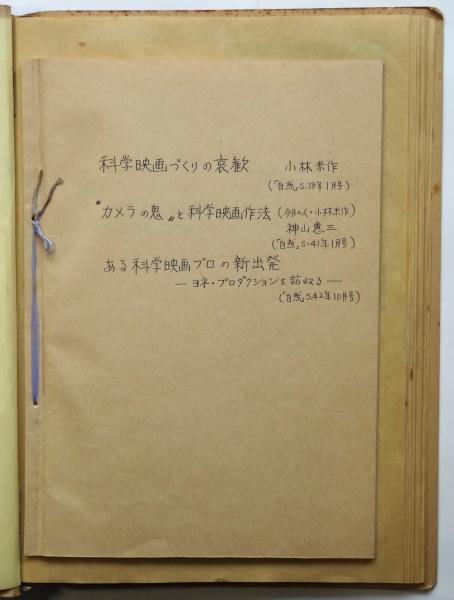 科学映画づくりの哀歓　小林米作
(「自然」S.39年1月号)
〝カメラの鬼〟と科学映画作法 (今月の人・小林米作)
神山恵三
(「自然」S.41年1月号)
ある科学映画プロの新出発
―ヨネ・プロダクションを訪ねる―
(「自然」S.42年10月号)